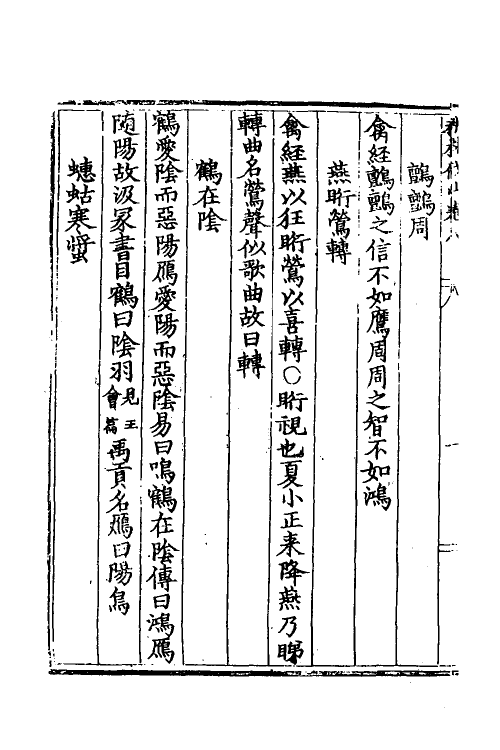 林伐山卷八
周
禽經之信不如鷹周周之智不如鴻
燕盻鶯轉
禽經燕以狂盻鶯以喜轉○盻視也夏小正来降燕乃睇
轉曲名鶯聲似歌曲故曰轉
鶴在陰
鶴愛陰而惡陽鴈愛陽而惡陰易曰鳴鶴在陰傳曰鴻鴈
随陽故汲冢書目鶴曰陰羽見王會篇禹貢名鴈曰陽鳥
蟪蛄寒螿